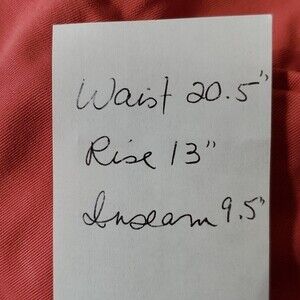 Waist 20.5"
Rise 13"
Inseam 9.5"